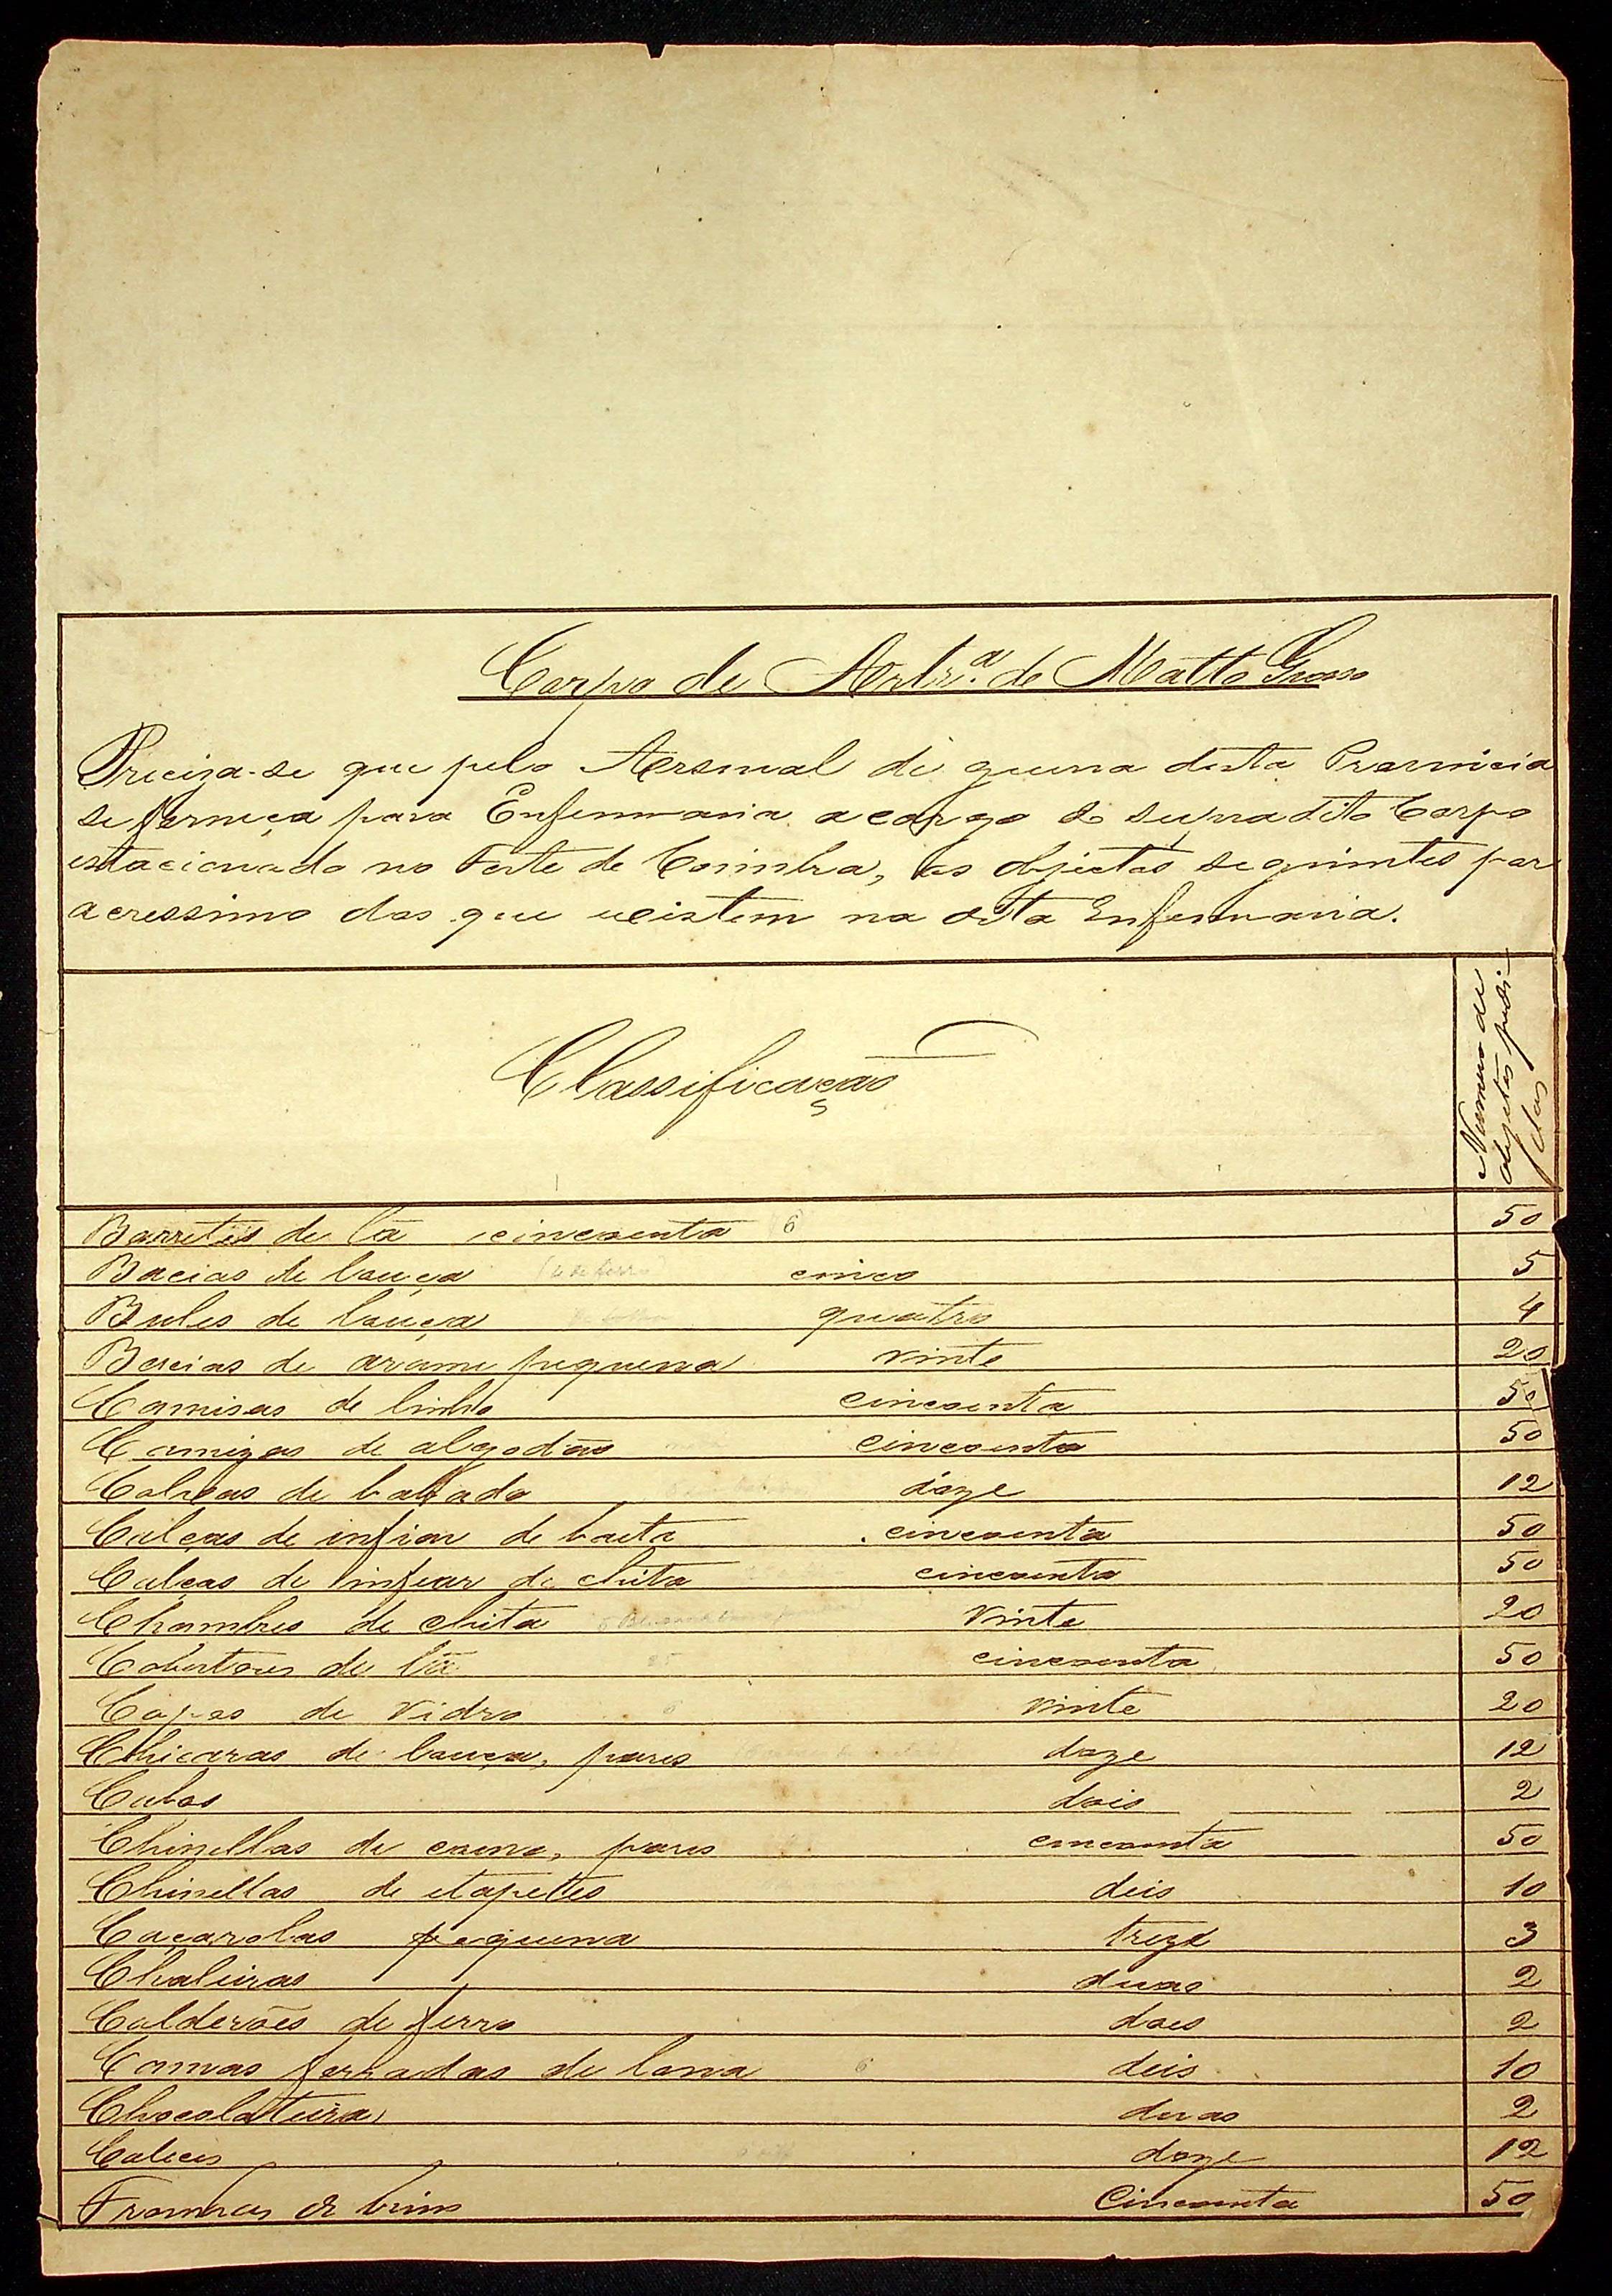 Corpo de Artr.ª de Matto Grosso
Preciza-se que pelo Aersenal de guerra desta Provincia
se forneça para Enfermaria a cargo do supradito Corpo
estacionado no Forte de Coimbra, os objectos seguintes por
acressimo dos que existem na dita Enfermaria.
Classificação
Numero de
objectos pedi-
dos
Barretes de lã cincoenta 6 50
Bacias de louça cinco 5
Bules de louça quatro 4
Bacias de arame pequena vinte 20
Camisas de linho cincoenta 50
Camizas de algodão cincoenta 50
de doze 12
Calças de infiar de baeta cincoenta 50
Calças de infiar de chita cincoenta 50
Chambres de chita Vinte 20
Cobertores de lã 25 cincoenta 50
Copos de Vidro 6 vinte 20
Chicaras de louça, pares doze 12
Cubos dois 2
Chinellas de couro, pares cincoenta 50
Chinellas de tapetes deis 10
Caçarolas pequena treze 3
Chaleiras duas 2
Calderões de ferro dois 2
Camas forradas de lona 6 deis 10
Chocolateira duas 2
Calices doze 12
Fronhas de brim Cincoenta 50